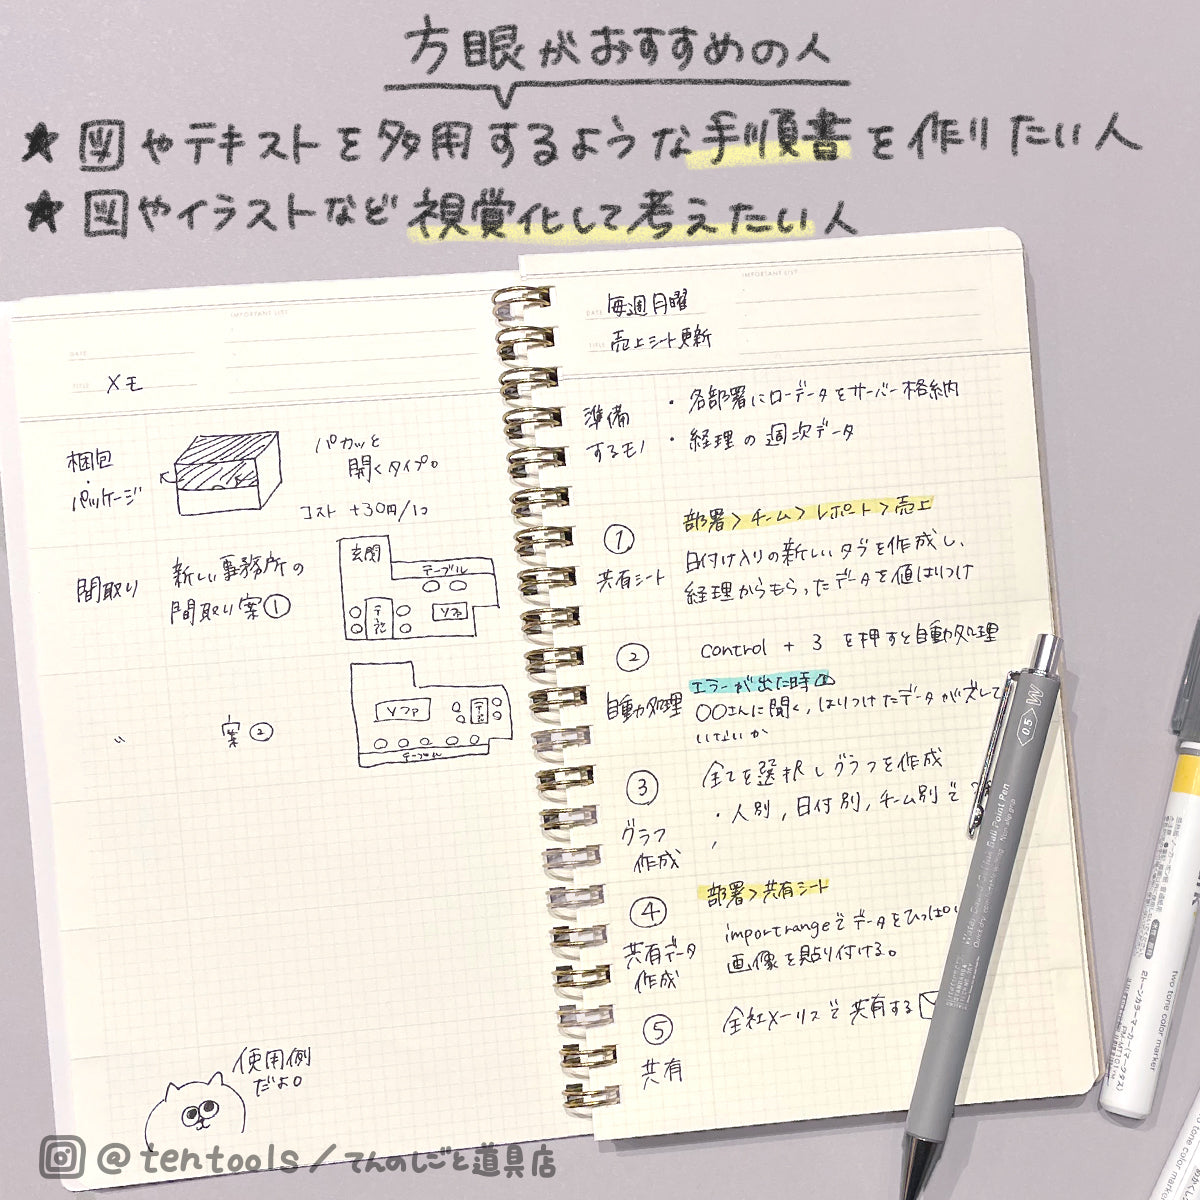 方眼がおすすめの人
★図やテキストを多用するような手順書を作りたい人
★図やイラストなど視覚化して考えたい人
IMPORTANT LIST
DATE
TITLE メモ
梱包
・パッケージ
パカッと
開くタイプ。
コスト +30円/1コ
間取り
新しい事務所の
間取り案①
玄関
テーブル
テーブル
ソファ
〃 案②
ソファ
テーブル
テーブル
使用例
だよ。
IMPORTANT LIST
DATE 毎週月曜
TITLE 売上シート更新
準備
するモノ
・各部署にローデータをサーバー格納
・経理の週次データ
①
共有シート
部署>チーム>レポート>売上
日付け入りの新しいタブを作成し、
経理からもらったデータを値はりつけ
②
自動処理
control + 3 を押すと自動処理
エラーが出た時は
〇〇さんに聞く, はりつけたデータがズレて
いないか
③
グラフ
作成
全てを選択しグラフを作成
・人別, 日付別, チーム別で
④
共有データ
作成
部署>共有シート
importrangeでデータをひっぱり
画像を貼り付ける。
⑤
共有
全社メーリスで共有する
0.5
Ball Point Pen
Non slip grip
two tone color marker
2トーンカラーマーカー(マークタス)
@tentools/てんのしごと道具店